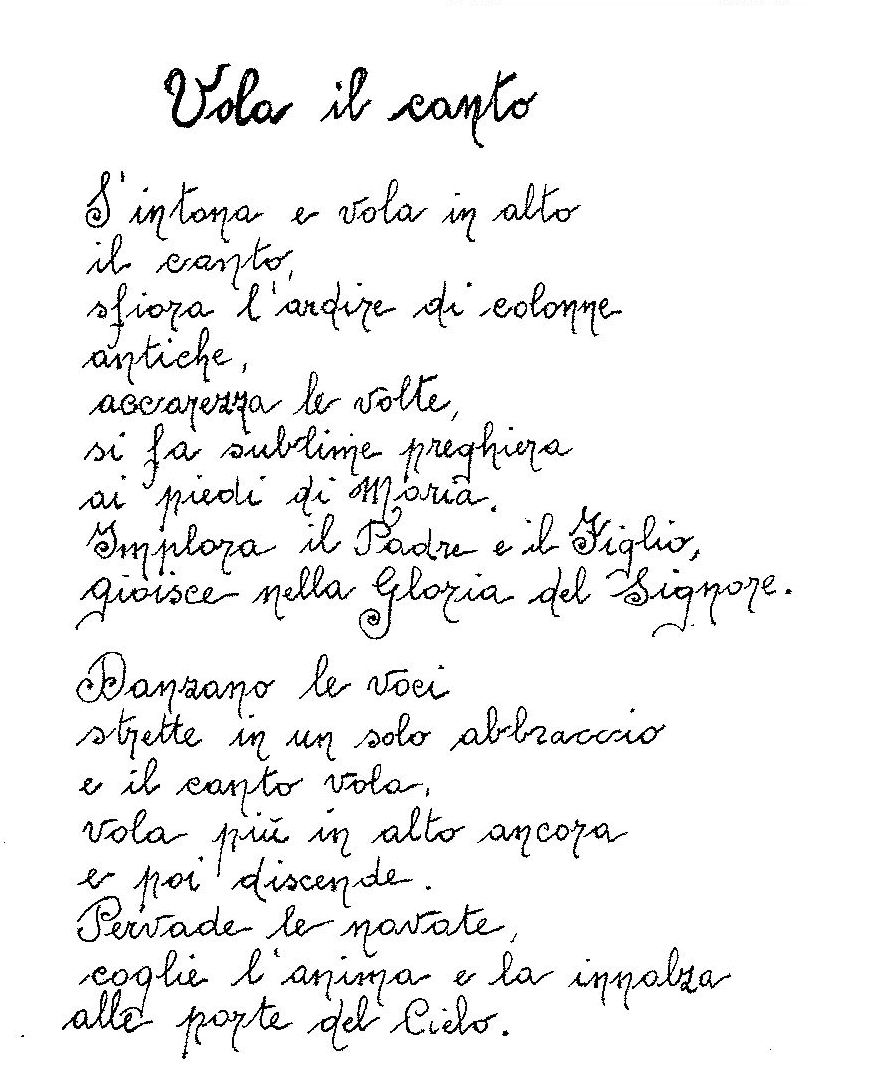 Vola il canto
S'intona e vola in alto
il canto,
sfiora l'ardire di colonne
antiche,
accarezza le volte,
si fa sublime preghiera
ai piedi di Maria.
Implora il Padre e il Figlio,
gioisce nella Gloria del Signore.
Danzano le voci
strette in un solo abbraccio
e il canto vola,
vola più in alto ancora
e poi discende.
Pervade le navate,
coglie l'anima e la innalza
alle porte del Cielo.